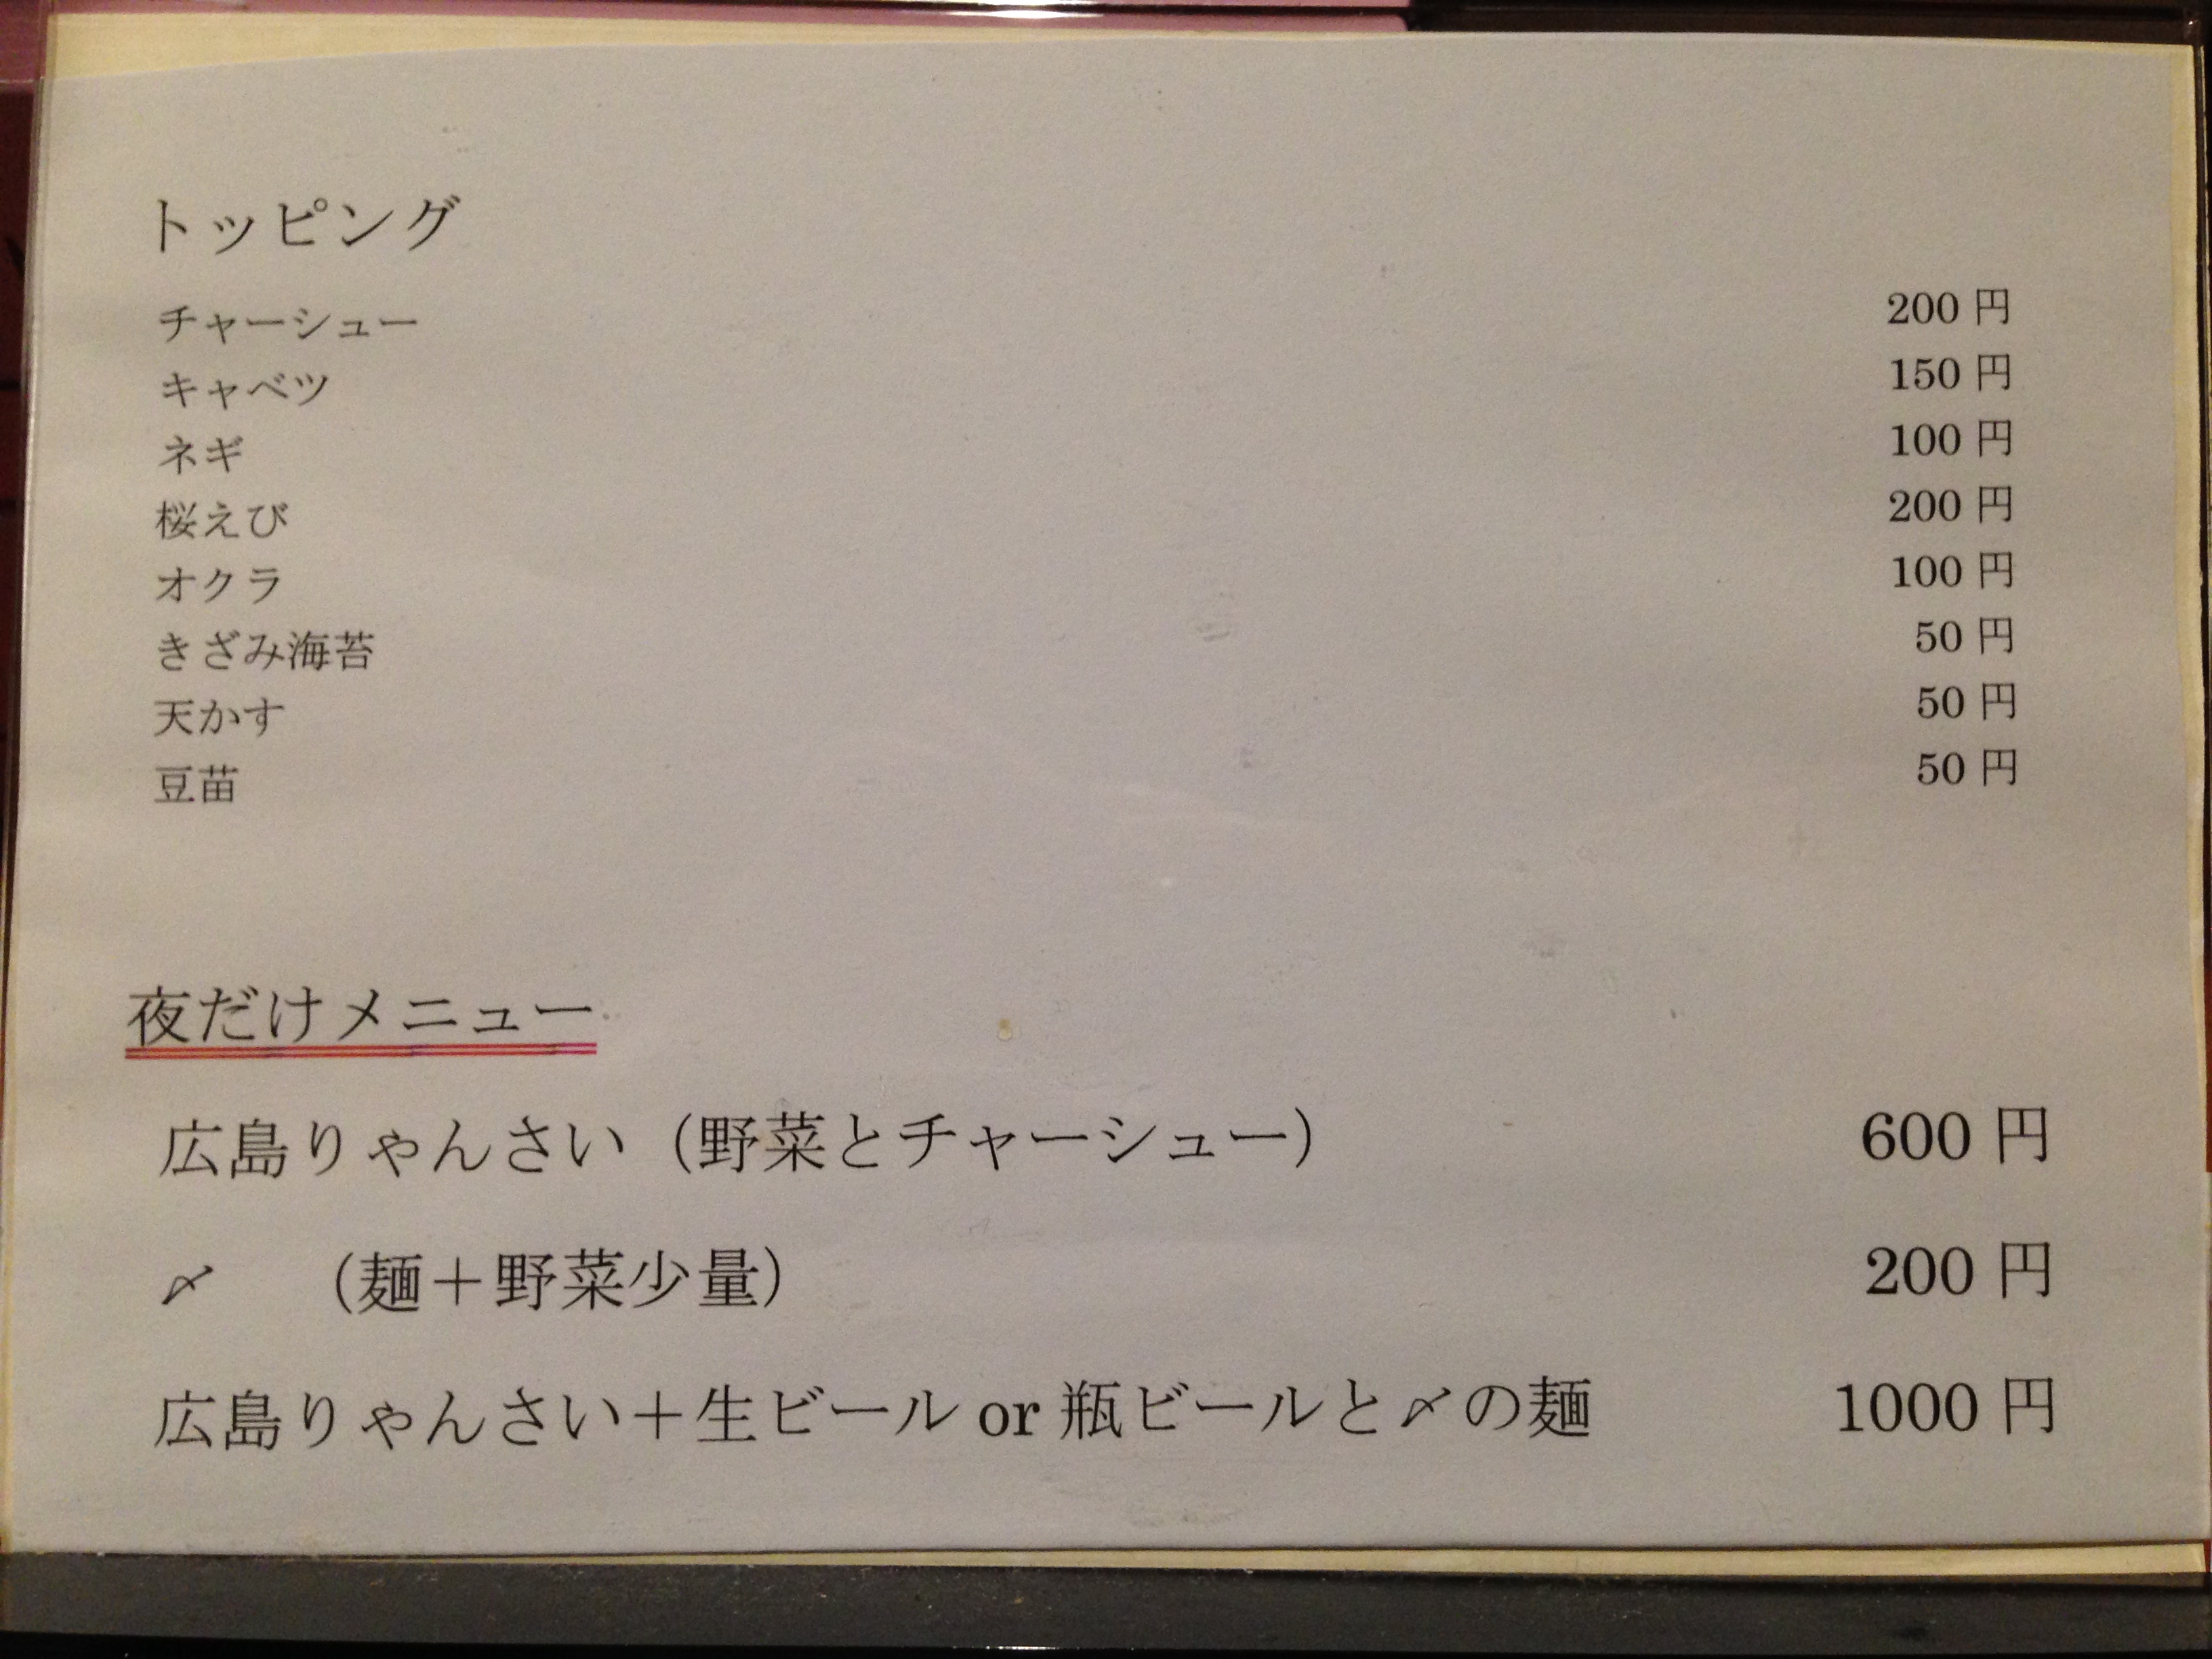 トッピング
チャーシュー 200 円
キャベツ 150 円
ネギ 100 円
桜えび 200 円
オクラ 100 円
きざみ海苔 50 円
天かす 50 円
豆苗 50 円
夜だけメニュー
広島りゃんさい（野菜とチャーシュー） 600 円
〆　（麺＋野菜少量） 200 円
広島りゃんさい＋生ビール or 瓶ビールと〆の麺 1000 円